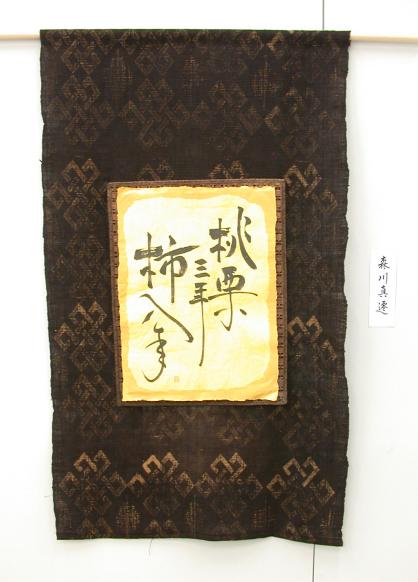 桃栗
三年
柿八年
森川真遷